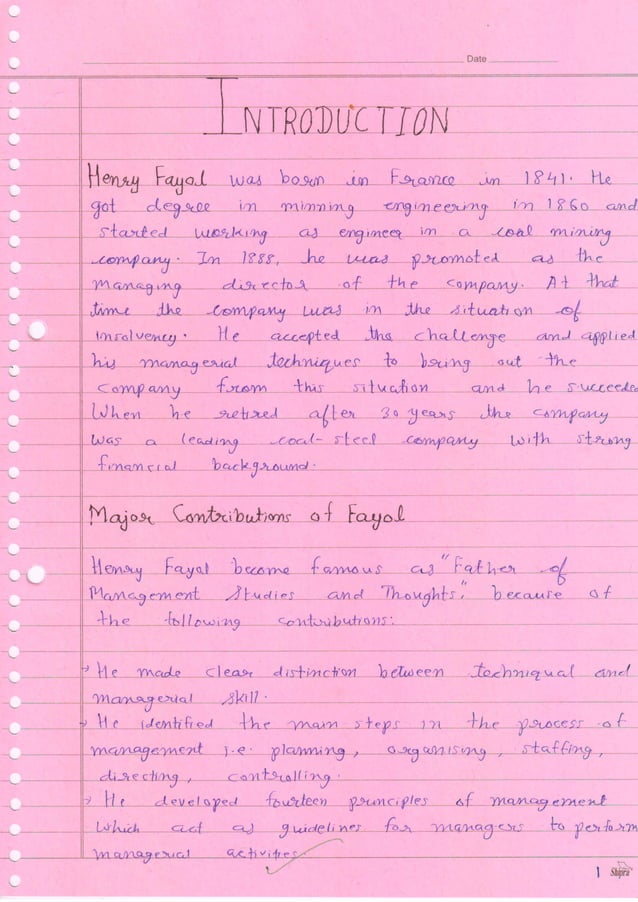 Date
INTRODUCTION
Henry Fayol was born in France in 1841. He
got degree in minning engineering in 1860 and
started working as engineer in a coal mining
company. In 1888, he was promoted as the
managing director of the company. At that
time the company was in the situation of
insolvency. He accepted the challenge and applied
his managerial techniques to bring out the
company from this situation and he succeeded
When he retired after 30 years the company
was a leading coal-steel company with strong
financial background.
Major Contributions of Fayol
Henry Fayol become famous as "Father of
Management Studies and Thoughts", because of
the following contributions:
→ He made clear distinction between techniqual and
managerial skill.
→ He identified the main steps in the process of
management i.e. planning, organising, staffing,
directing, controlling.
→ He developed fourteen principles of management
which act as guidelines for managers to perform
managerial activities.
1 Shipra